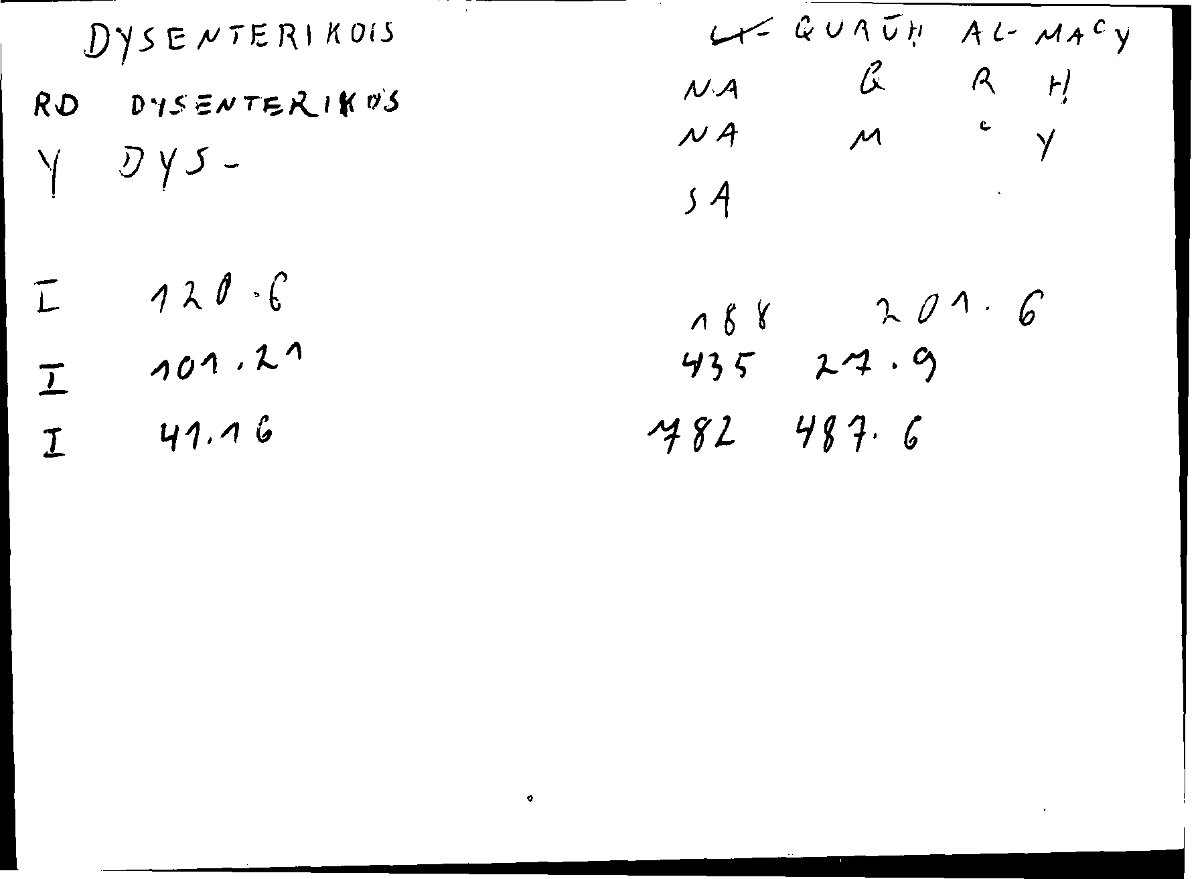 DYSENTERIKOIS
RD DYSENTERIKOS
Y DYS-
I 120.6
I 101.21
I 41.16
QURŪḤ AL-MAcY
NA Q R Ḥ
NA M c Y
SA
188 201.6
435 27.9
782 487.6